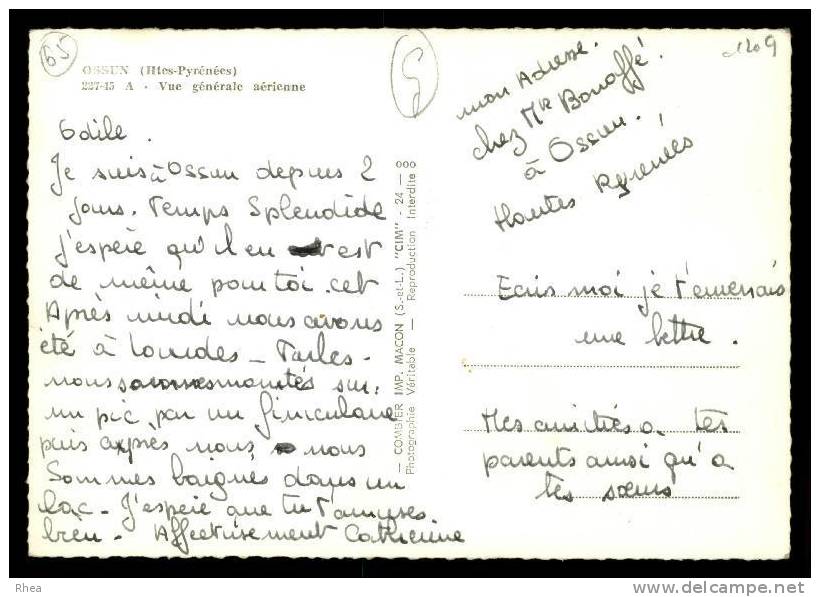 65
OSSUN (Htes-Pyrénées)
227-45 A - Vue générale aérienne
Odile.
Je suis à Ossun depuis 2
jours. Temps Splendide
j'espère qu'il en est
de même pour toi. cet
Après midi nous avons
été à Lourdes - Tarbes -
nous sommes montés sur
un pic par un finiculaire
puis après nous nous
Sommes baignés dans un
lac - J'espère que tu t'amuses
bien - Affectueusement Catherine
— COMBIER IMP. MACON (S.-et-L.) "CIM" - 24 — 000
Photographie Véritable — Reproduction Interdite
1209
mon Adresse.
chez Mr Bonaffé.
à Ossun.,
Hautes Pyrenées
Ecris moi je t'enverrais
une lettre.
Mes amitiés a tes
parents ainsi qu'a
tes sœurs
Rhea
www.delcampe.net